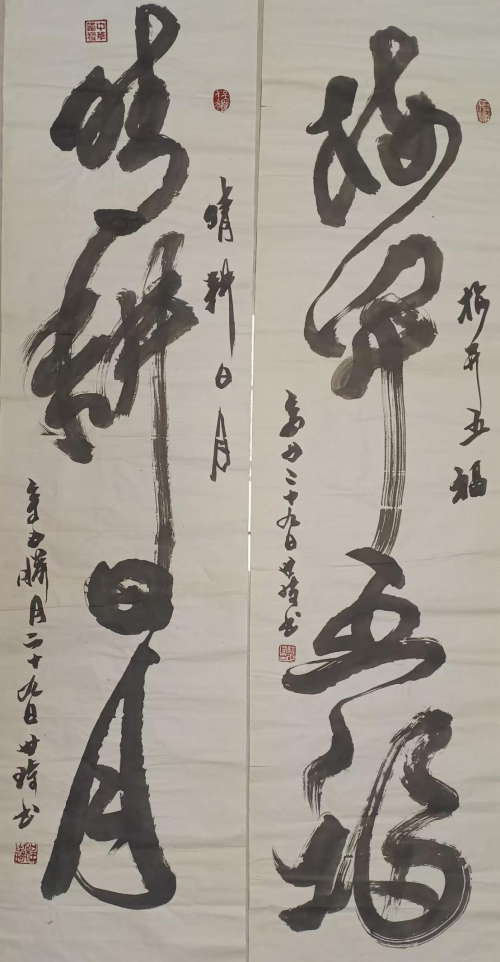 梅开五福
梅开五福
辛丑二十九日世书
晴耕日月
晴耕日月
辛丑腊月二十九日世书